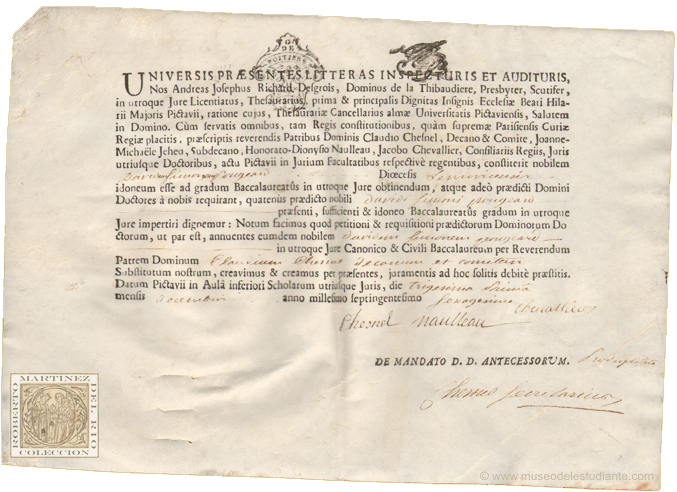 G. DE
POITIERS
UNIVERSIS PRÆSENTES LITTERAS INSPECTURIS ET AUDITURIS,
Nos Andreas Josephus Richard Desgrois, Dominus de la Thibaudiere, Presbyter, Scutifer,
in utroque Jure Licentiatus, Thesaurarius, prima & principalis Dignitas Insignis Ecclesiæ Beati Hila-
rii Majoris Pictavii, ratione cujus, Thesaurariæ Cancellarius almæ Universitatis Pictaviensis, Salutem
in Domino. Cùm servatis omnibus, tam Regis constitutionibus, quàm supremæ Parisiensis Curiæ
Regiæ placitis, præscriptis reverendis Patribus Dominis Claudio Chesnel, Decano & Comite, Joanne-
Michaële Jcheu, Subdecano, Honorato-Dionysio Naulleau, Jacobo Chevallier, Consiliariis Regiis, Juris
utriusque Doctoribus, actu Pictavii in Jurium Facultatibus respectivè regentibus, constiterit nobilem
Davidem Simonem Diœcesis Lemovicensis
idoneum esse ad gradum Baccalaureatûs in utroque Jure obtinendum, atque adeò prædicti Domini
Doctores à nobis requirant, quatenus prædicto nobili Davidi Simoni
præsenti, sufficienti & idoneo Baccalaureatûs gradum in utroque
Jure impertiri dignemur: Notum facimus quod petitioni & requisitioni prædictorum Dominorum Do-
ctorum, ut par est, annuentes eumdem nobilem Davidem Simonem
in utroque Jure Canonico & Civili Baccalaureum per Reverendum
Patrem Dominum Claudium Chesnel decanum et comitem
Substitutum nostrum, creavimus & creamus per præsentes, juramentis ad hoc solitis debitè præstitis.
Datum Pictavii in Aulâ inferiori Scholarum utriusque Juris, die trigesima prima
mensis decembris anno millesimo septingentesimo sexagesimo
Chesnel Naulleau Chevallier
DE MANDATO D. D. ANTECESSORUM.
Thomé secretarius
ROBERTO
MARTINEZ
DEL RIO
COLECCION
© www.museodelestudiante.com